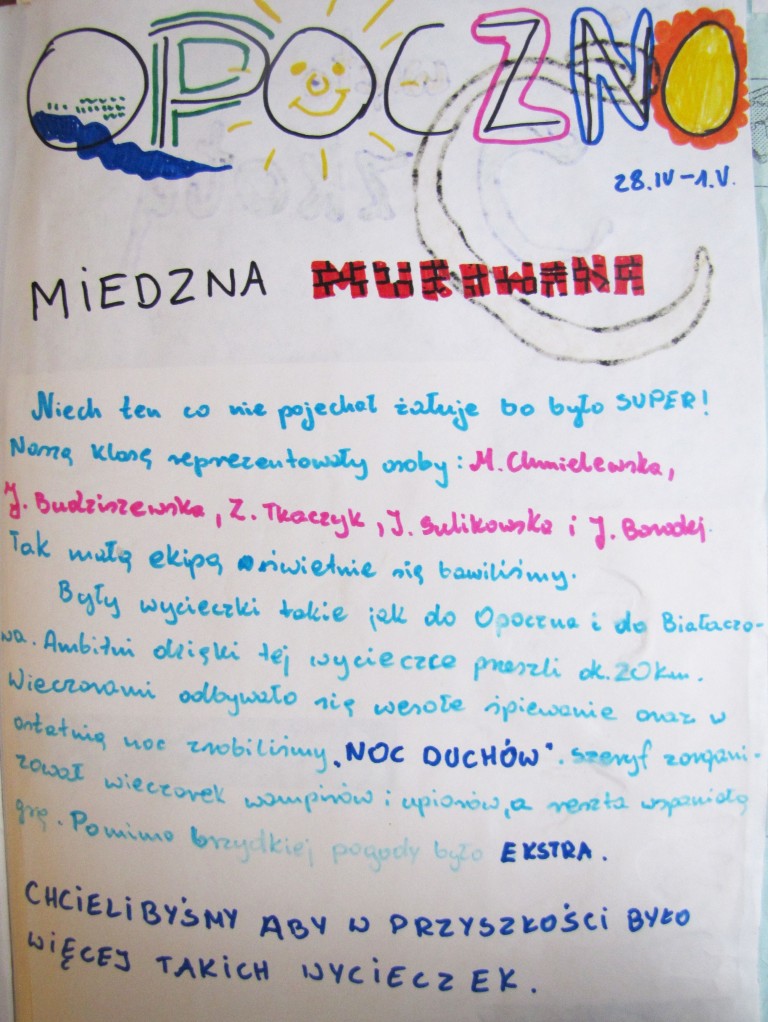 OPOCZNO
28.IV-1.V.
MIEDZNA MUROWANA
Niech ten co nie pojechał żałuje bo było SUPER!
Naszą klasę reprezentowały osoby: M. Chmielewska,
J. Budziszewska, Z. Tkaczyk, J. Sulikowska i J. Borodej.
Tak małą ekipą świetnie się bawiliśmy.
Były wycieczki takie jak do Opoczna i do Białaczo-
wa. Ambitni dzięki tej wycieczce przeszli ok. 20 km.
Wieczorami odbywało się wesołe śpiewanie oraz w
ostatnią noc zrobiliśmy "NOC DUCHÓW". Szeryf zorgani-
zował wieczorek wampirów i upiorów, a reszta wspaniałą
grę. Pomimo brzydkiej pogody było EKSTRA.
CHCIELIBYŚMY ABY W PRZYSZŁOŚCI BYŁO
WIĘCEJ TAKICH WYCIECZEK.